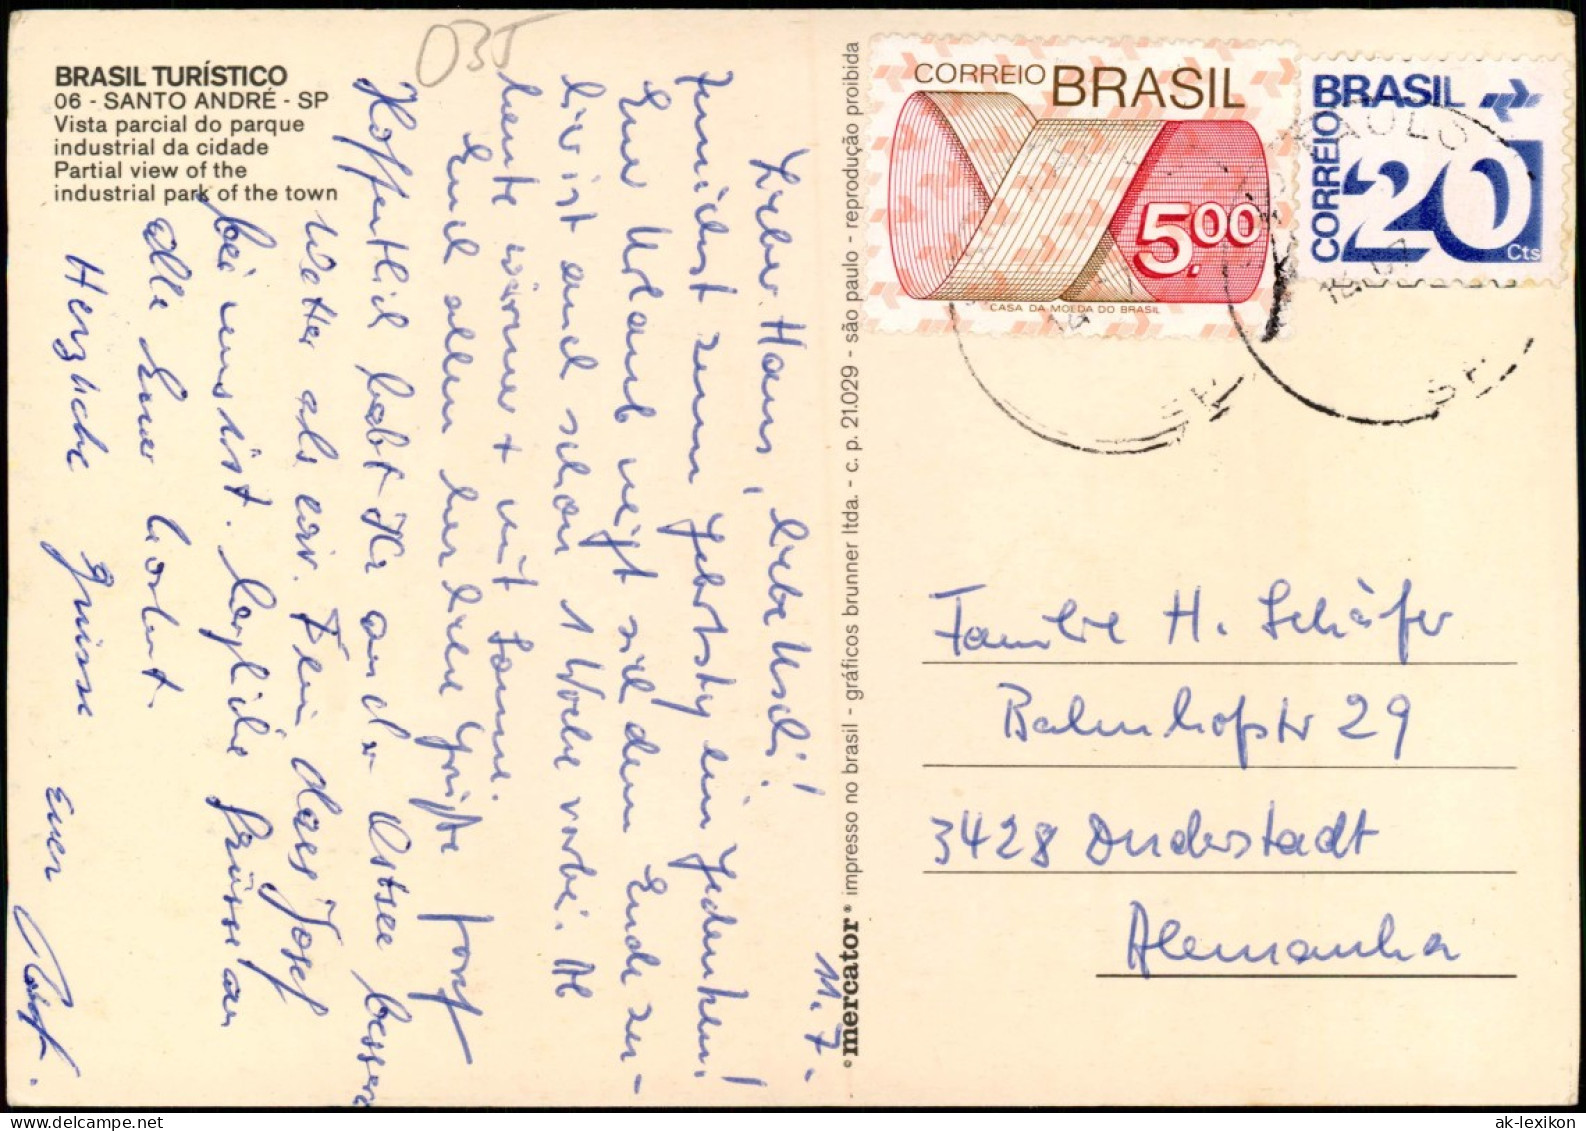 035
BRASIL TURÍSTICO
06 - SANTO ANDRÉ - SP
Vista parcial do parque
industrial da cidade
Partial view of the
industrial park of the town
11.7.
Lieber Hans, liebe Uschi!
zum Gebutstg ein Gedenken!
Euer Urlaub neigt sich dem Ende zu -
hier ist auch schon 1 Woche vorbei. Ab
heute wärmer + mit Sonne.
Euch allen herzliche Grüße
Hoffentlich habt Ihr an der Ostsee besser
Wetter als wir. Fein dass Josef
bei uns ist. Grüsse an
alle Euer
Herzliche Grüsse Euer
mercator impresso no brasil - gráficos brunner ltda. - c. p. 21.029 - são paulo - reprodução proibida
CORREIO BRASIL
5,00
CASA DA MOEDA DO BRASIL
BRASIL
CORREIO
20
Cts
PAULO
SP
SP
Familie H. Schäfer
Bahnhofstr 29
3428 Duderstadt
Alemanha
ak-lexikon